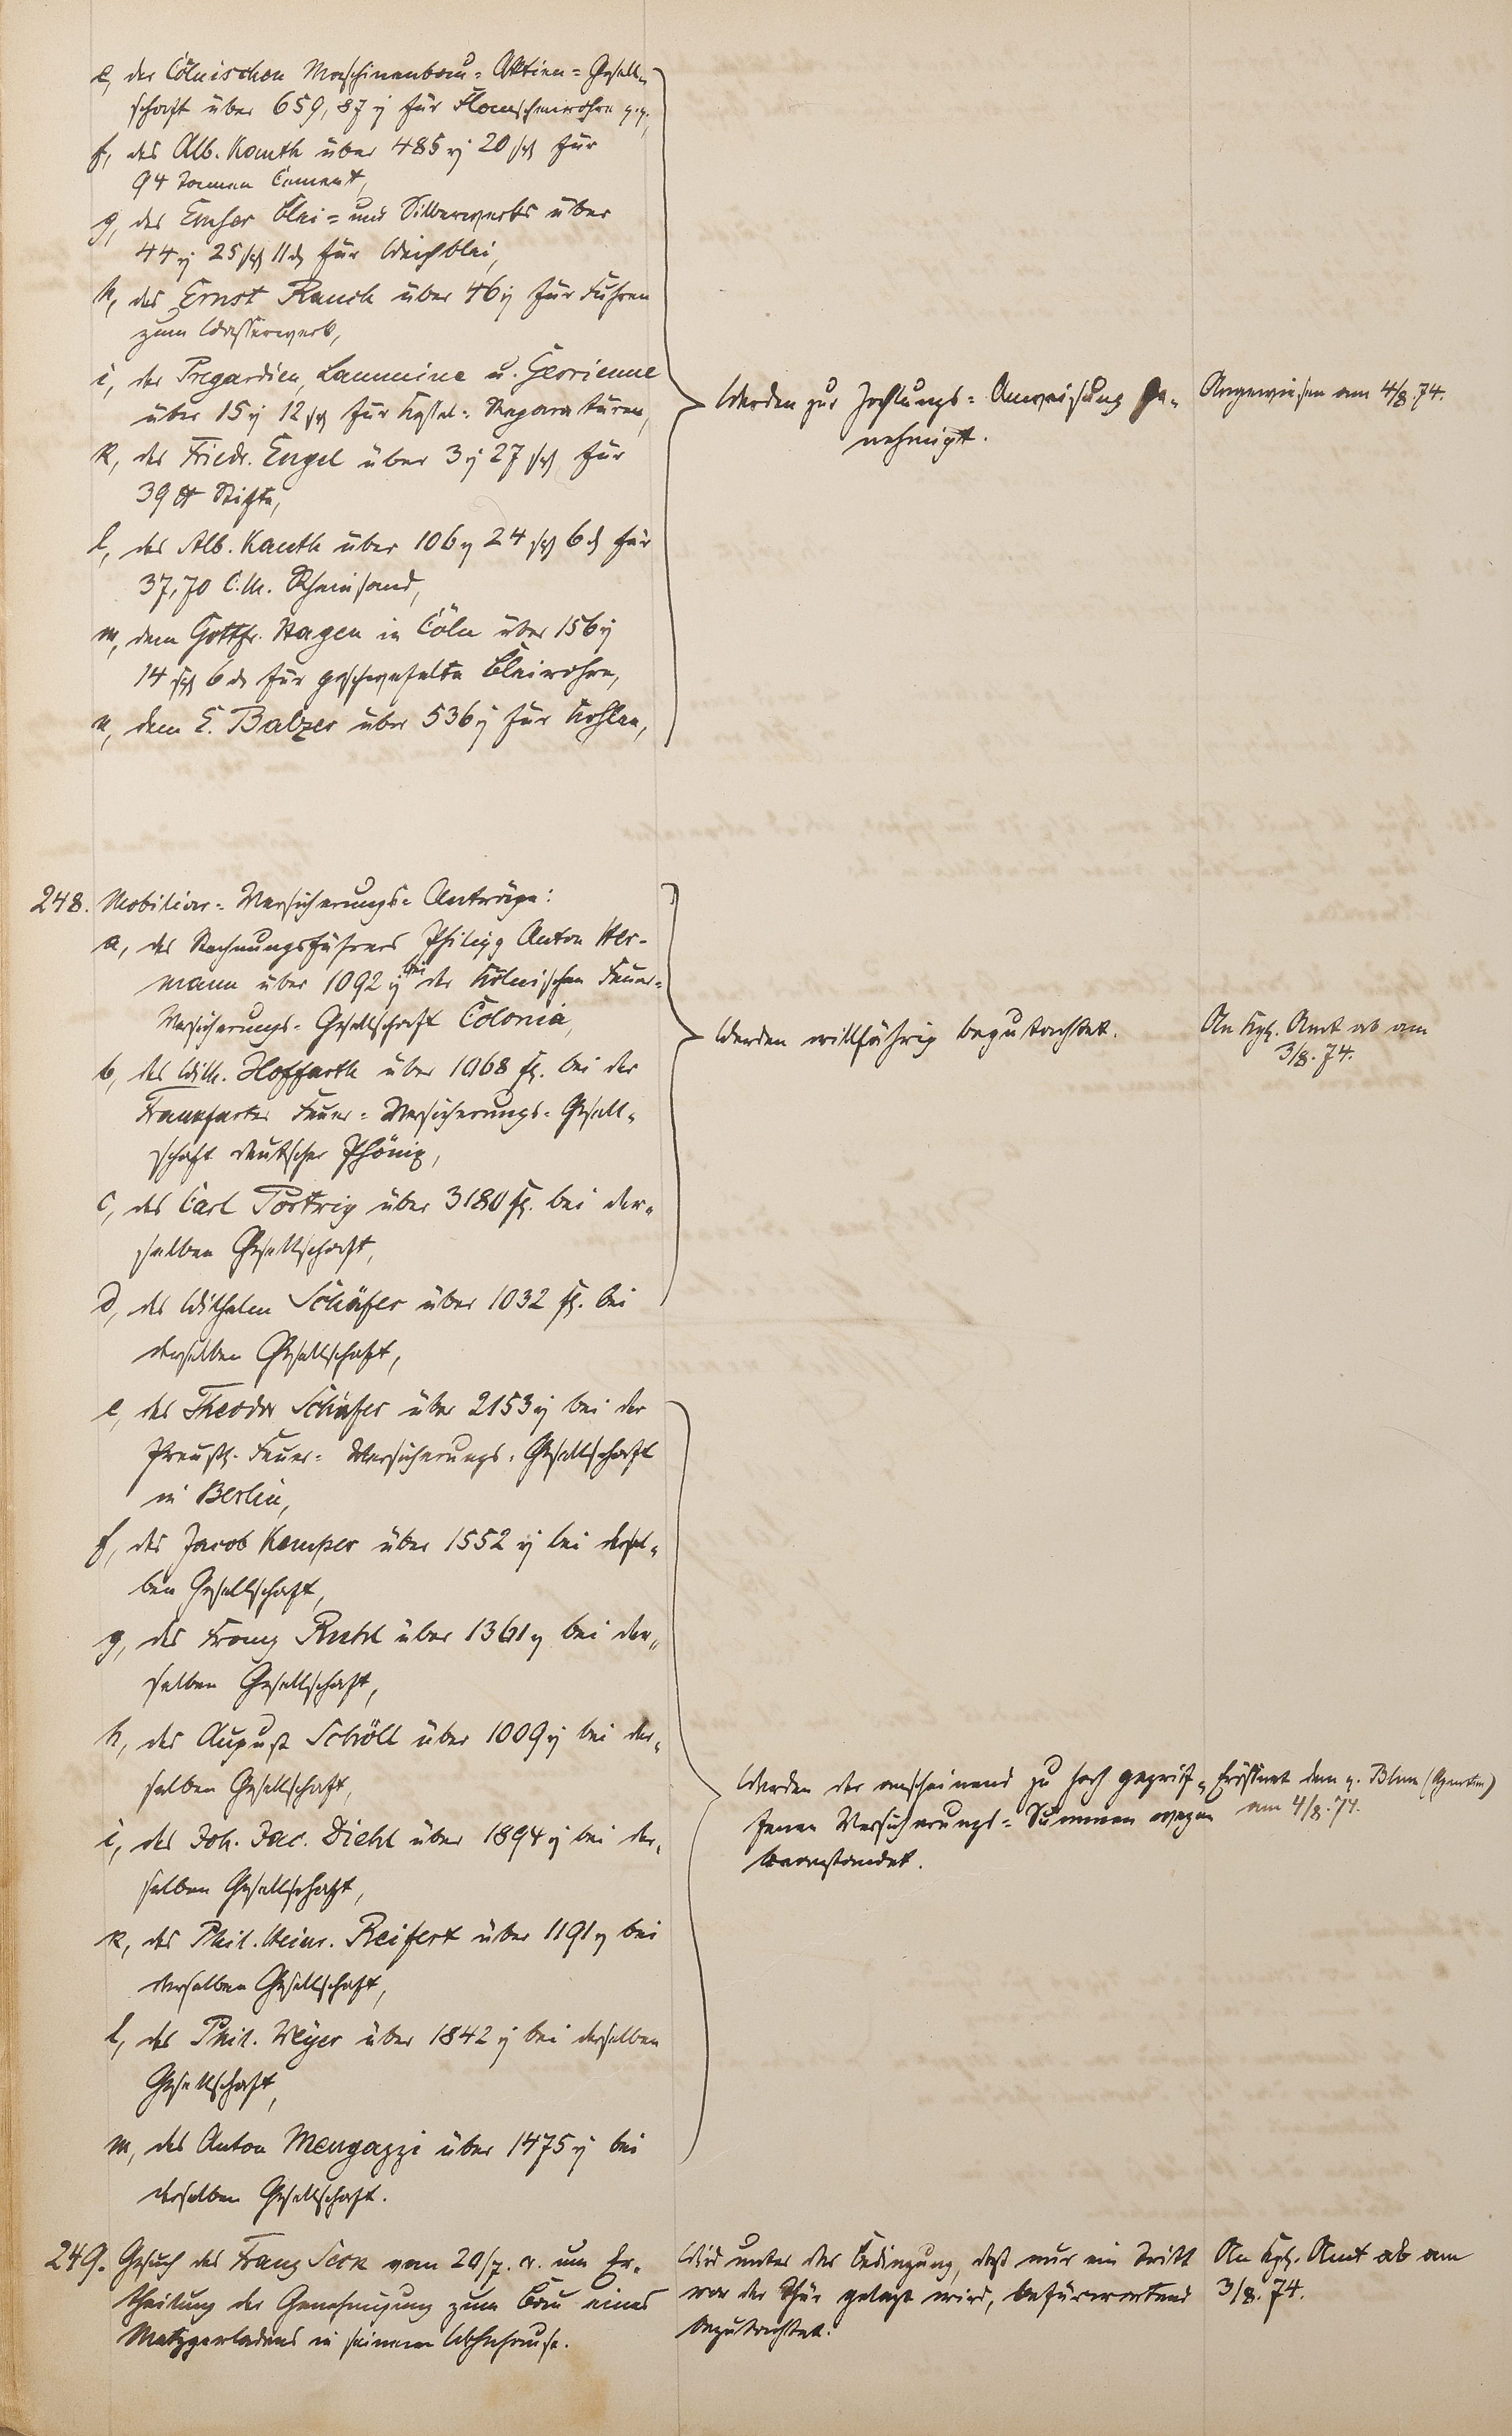 e, der Cölnischen Maschinenbau-Aktien-Gesell-
schaft über 659,87 für
f, des Alb. Kauth über 485 20 für
94 Tonnen Cement,
g, des Emser Blei- und Silberwerks über
44 25 11 für Weichblei,
h, des Ernst Rauch über 46 für Fuhren
zum Wasserwerk,
i, der Pregardien, Lammine u.
über 15 12 für Kessel-Reparaturen,
k, des Friedr. Engel über 3 27 für
39 Stifte,
l, des Alb. Kauth über 106 24 6 für
37,70 C.M. Rheinsand,
m, dem Gottfr. Hagen in Cöln über 156
14 6 für geschwefelte Bleirohre,
n, dem E. Balzer über 536 für Kohlen,
Werden zur Zahlungs-Anweisung ge-
nehmigt.
Angewiesen am 4/8.74.
248. Mobiliar-Versicherungs-Anträge:
a, des Rechnungsführers Philipp Anton Her-
mann über 1092 bei der Kölnischen Feuer-
Versicherungs-Gesellschaft Colonia,
b, des Wilh. Hoffarth über 1068 fl. bei der
Frankfurter Feuer-Versicherungs-Gesell-
schaft deutscher Phönix,
c, des Carl über 3180 fl. bei der-
selben Gesellschaft,
d, des Wilhelm Schäfer über 1032 fl. bei
derselben Gesellschaft,
Werden willfährig begutachtet.
An Kgl. Amt ab am
3/8.74.
e, des Theodor Schäfer über 2153 bei der
Preuß. Feuer-Versicherungs-Gesellschaft
in Berlin,
f, des Jacob Kemper über 1552 bei dersel-
ben Gesellschaft,
g, des Franz Ruhl über 1361 bei der-
selben Gesellschaft,
h, des August Schöll über 1009 bei der-
selben Gesellschaft,
i, des Joh. Jac. Diehl über 1894 bei der-
selben Gesellschaft,
k, des Phil. Heinr. Reifert über 1191 bei
derselben Gesellschaft,
l, des Phil. Weyer über 1842 bei derselben
Gesellschaft,
m, des Anton Mengazzi über 1475 bei
derselben Gesellschaft.
Werden der anscheinend zu hoch gegrif-
fenen Versicherungs-Summen wegen
beanstandet.
Eröffnet dem p. Blum (Agenten)
am 4/8.74.
249. Gesuch des Franz Seck vom 20/7. cr. um Er-
theilung der Genehmigung zum Bau eines
Metzgerladens in seinem Wohnhause.
Wird unter der Bedingung, daß nur ein Tritt
vor der Thür gelegt wird, befürwortend
begutachtet.
An Kgl. Amt ab am
3/8.74.